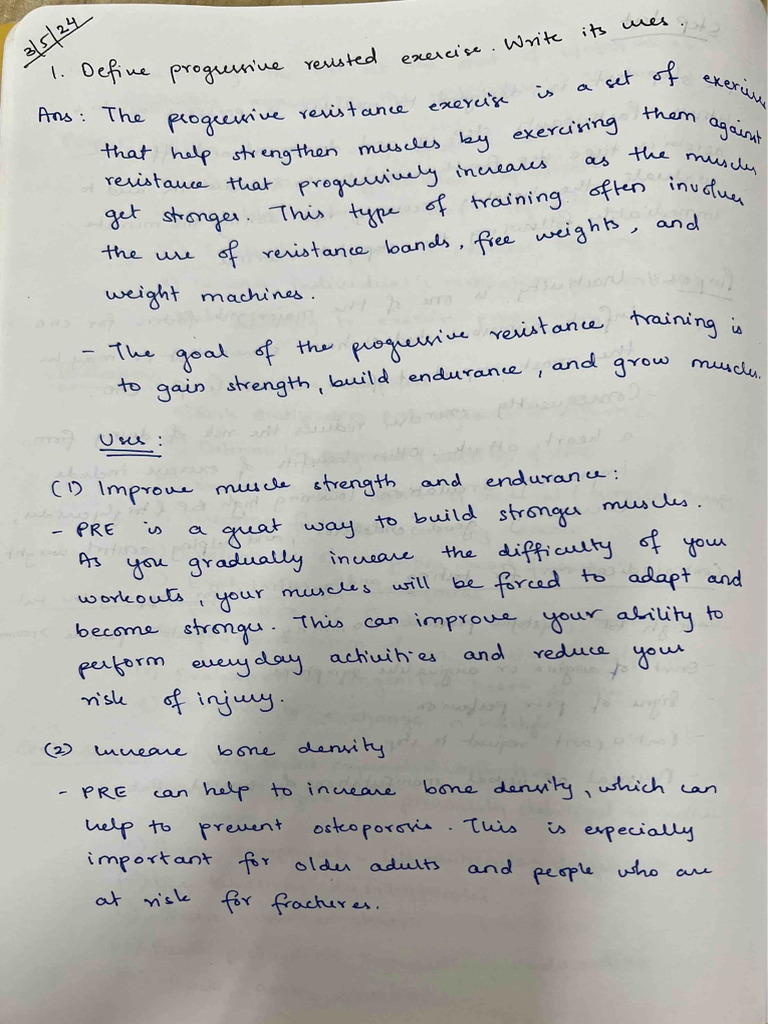 3/5/24
1. Define progressive resisted exercise. Write its uses.
Ans: The progressive resistance exercise is a set of exercise
that help strengthen muscles by exercising them against
resistance that progressively increases as the muscles
get stronger. This type of training often involves
the use of resistance bands, free weights, and
weight machines.
- The goal of the progressive resistance training is
to gain strength, build endurance, and grow muscles.
Uses:
(1) Improve muscle strength and endurance:
- PRE is a great way to build stronger muscles.
As you gradually increase the difficulty of your
workouts, your muscles will be forced to adapt and
become stronger. This can improve your ability to
perform everyday activities and reduce your
risk of injury.
(2) Increase bone density
- PRE can help to increase bone density, which can
help to prevent osteoporosis. This is especially
important for older adults and people who are
at risk for fractures.